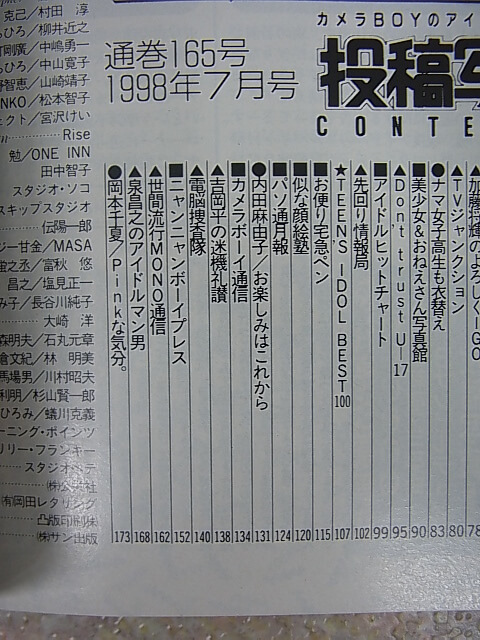 カメラBOYのアイ
投稿写
CONTE
通巻165号
1998年7月号
加藤将輝のよろしく―GO 78
▲TVジャンクション 80
●ナマ女子高生も衣替え 83
■美少女&おねえさん写真館 90
▲Don't trust U―17 95
■アイドルヒットチャート 99
▲先回り情報局 102
★TEENS' IDOL BEST100 107
■お便り宅急ペン 115
■似な顔絵塾 120
■パソ通月報 124
●内田麻由子/お楽しみはこれから 131
■カメラボーイ通信 134
▲吉岡平の迷機礼讃 138
▲電脳捜査隊 140
■ニャンニャンボーイプレス 152
▲世間流行MONO通信 162
▲泉昌之のアイドルマン男 168
●岡本千夏/Pinkな気分。 173
克己/村田 淳
ちひろ/柳井近之
町剛廣/中嶋勇一
ちひろ/中山寛子
野智恵/山崎靖子
NKO/松本智子
ェクト/宮沢けい
Rise
勉/ONE INN
田中智子
スタジオ・ソコ
スキップスタジオ
伝陽一郎
ジー甘金/MASA
金之丞/富秋 悠
昌之/塩見正一
み子/長谷川純子
大崎 洋
森明夫/石丸元章
倉文紀/林 明美
馬場男/川村昭夫
利明/杉山賢一郎
ひろみ/蟻川克義
ーニング・ポインツ
リリー・フランキー
スタジオベテ
㈱公栄社
㈲岡田レタリング
凸版印刷㈱
㈱サン出版